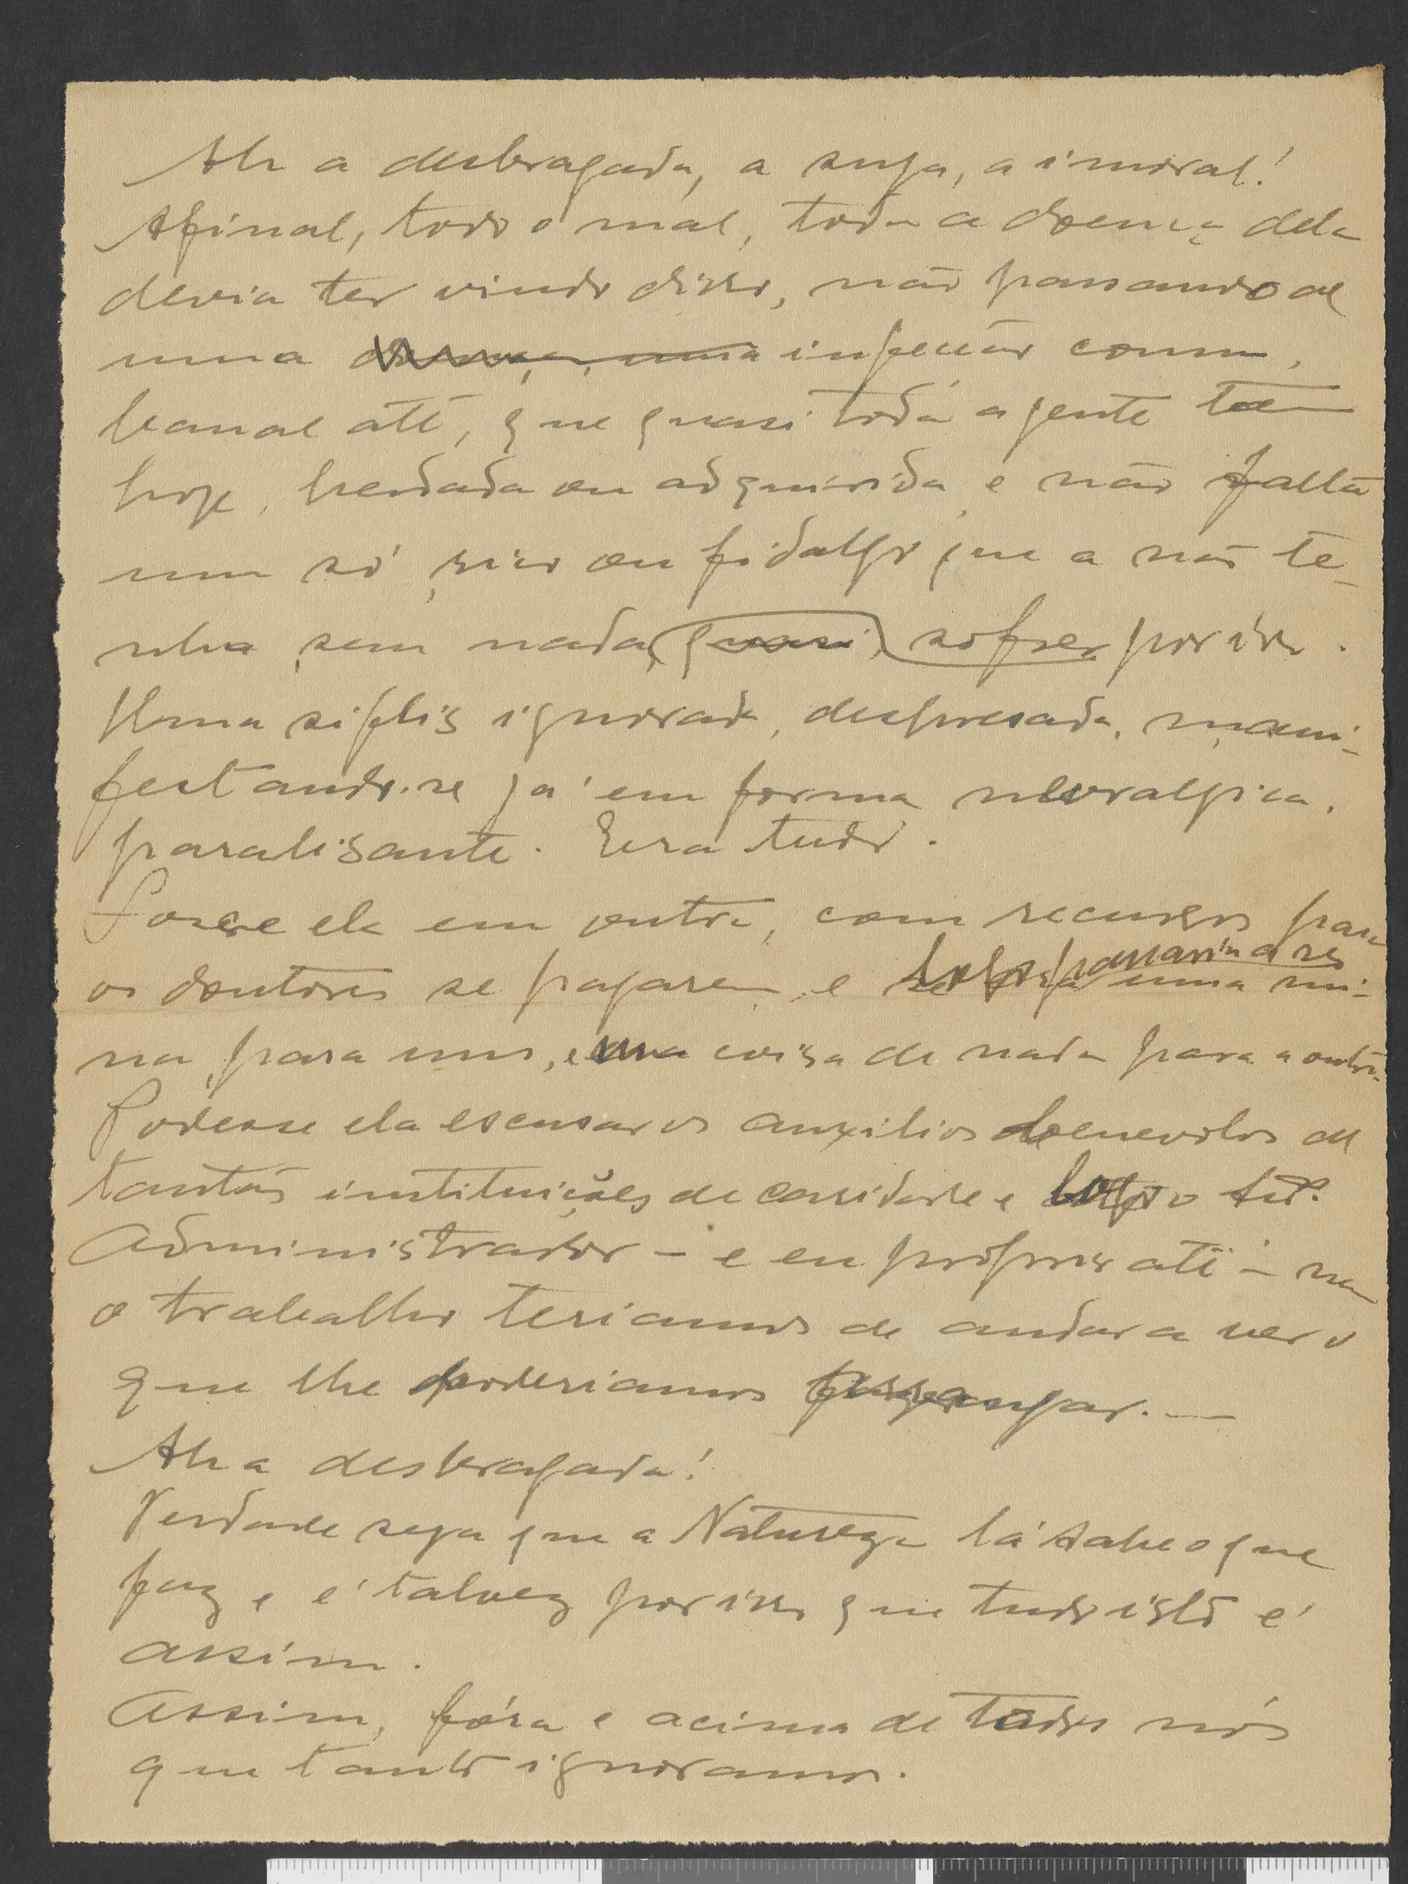 Ah a desbragada, a suja, a imoral!
Afinal, todo o mal, toda a doença dela
devia ter vindo disso, não passando de
uma doença, uma infeção comum,
banal até, que quasi toda a gente tem
hoje, herdada ou adquirida e não falta
um só, rico ou fidalgo que a não te-
nha, sem nada, quasi, sofrer por isso.
Uma sifilis ignorada, despresada, mani-
festando-se já em forma nevralgica,
paralisante. Era tudo.
Fosse ela um outro, com recursos para
os doutores se pagarem, e logo passaria a ser uma mi-
na, para uns, e uma coisa de nada para a outra.
Podesse ela escusar os auxilios benevolos de
tantas instituições de caridade e logo o Snr.
Administrador - e eu proprio até - nem
o trabalho teriamos de andar a ver o
que lhe poderiamos sugar. —
Ah a desbragada!
Verdade seja que a Natureza lá sabe o que
faz e é talvez por isso que tudo isto é
assim.
Assim, fóra e acima de todos nós
que tanto ignoramos.